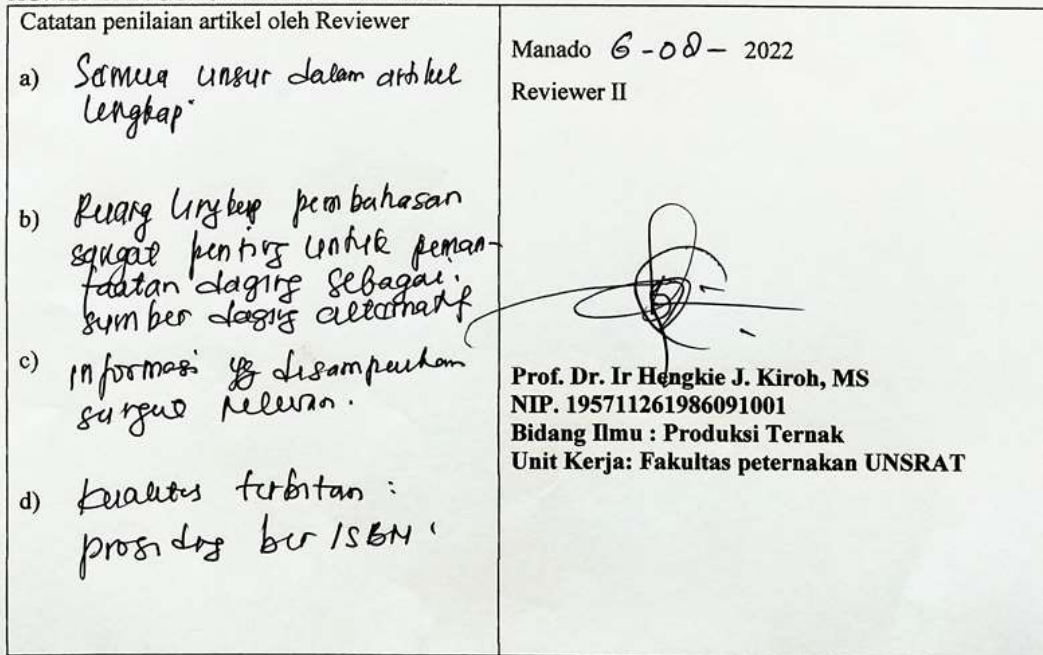 Catatan penilaian artikel oleh Reviewer
a) Semua unsur dalam artikel
lengkap.
b) Ruang lingkup pembahasan
sangat penting untuk peman-
faatan daging sebagai
sumber daging alternatif
c) informasi yg disampaikan
sangat relevan.
d) Kualitas terbitan :
prosiding ber ISBN.
Manado 6-08- 2022
Reviewer II
Prof. Dr. Ir Hengkie J. Kiroh, MS
NIP. 195711261986091001
Bidang Ilmu : Produksi Ternak
Unit Kerja: Fakultas peternakan UNSRAT